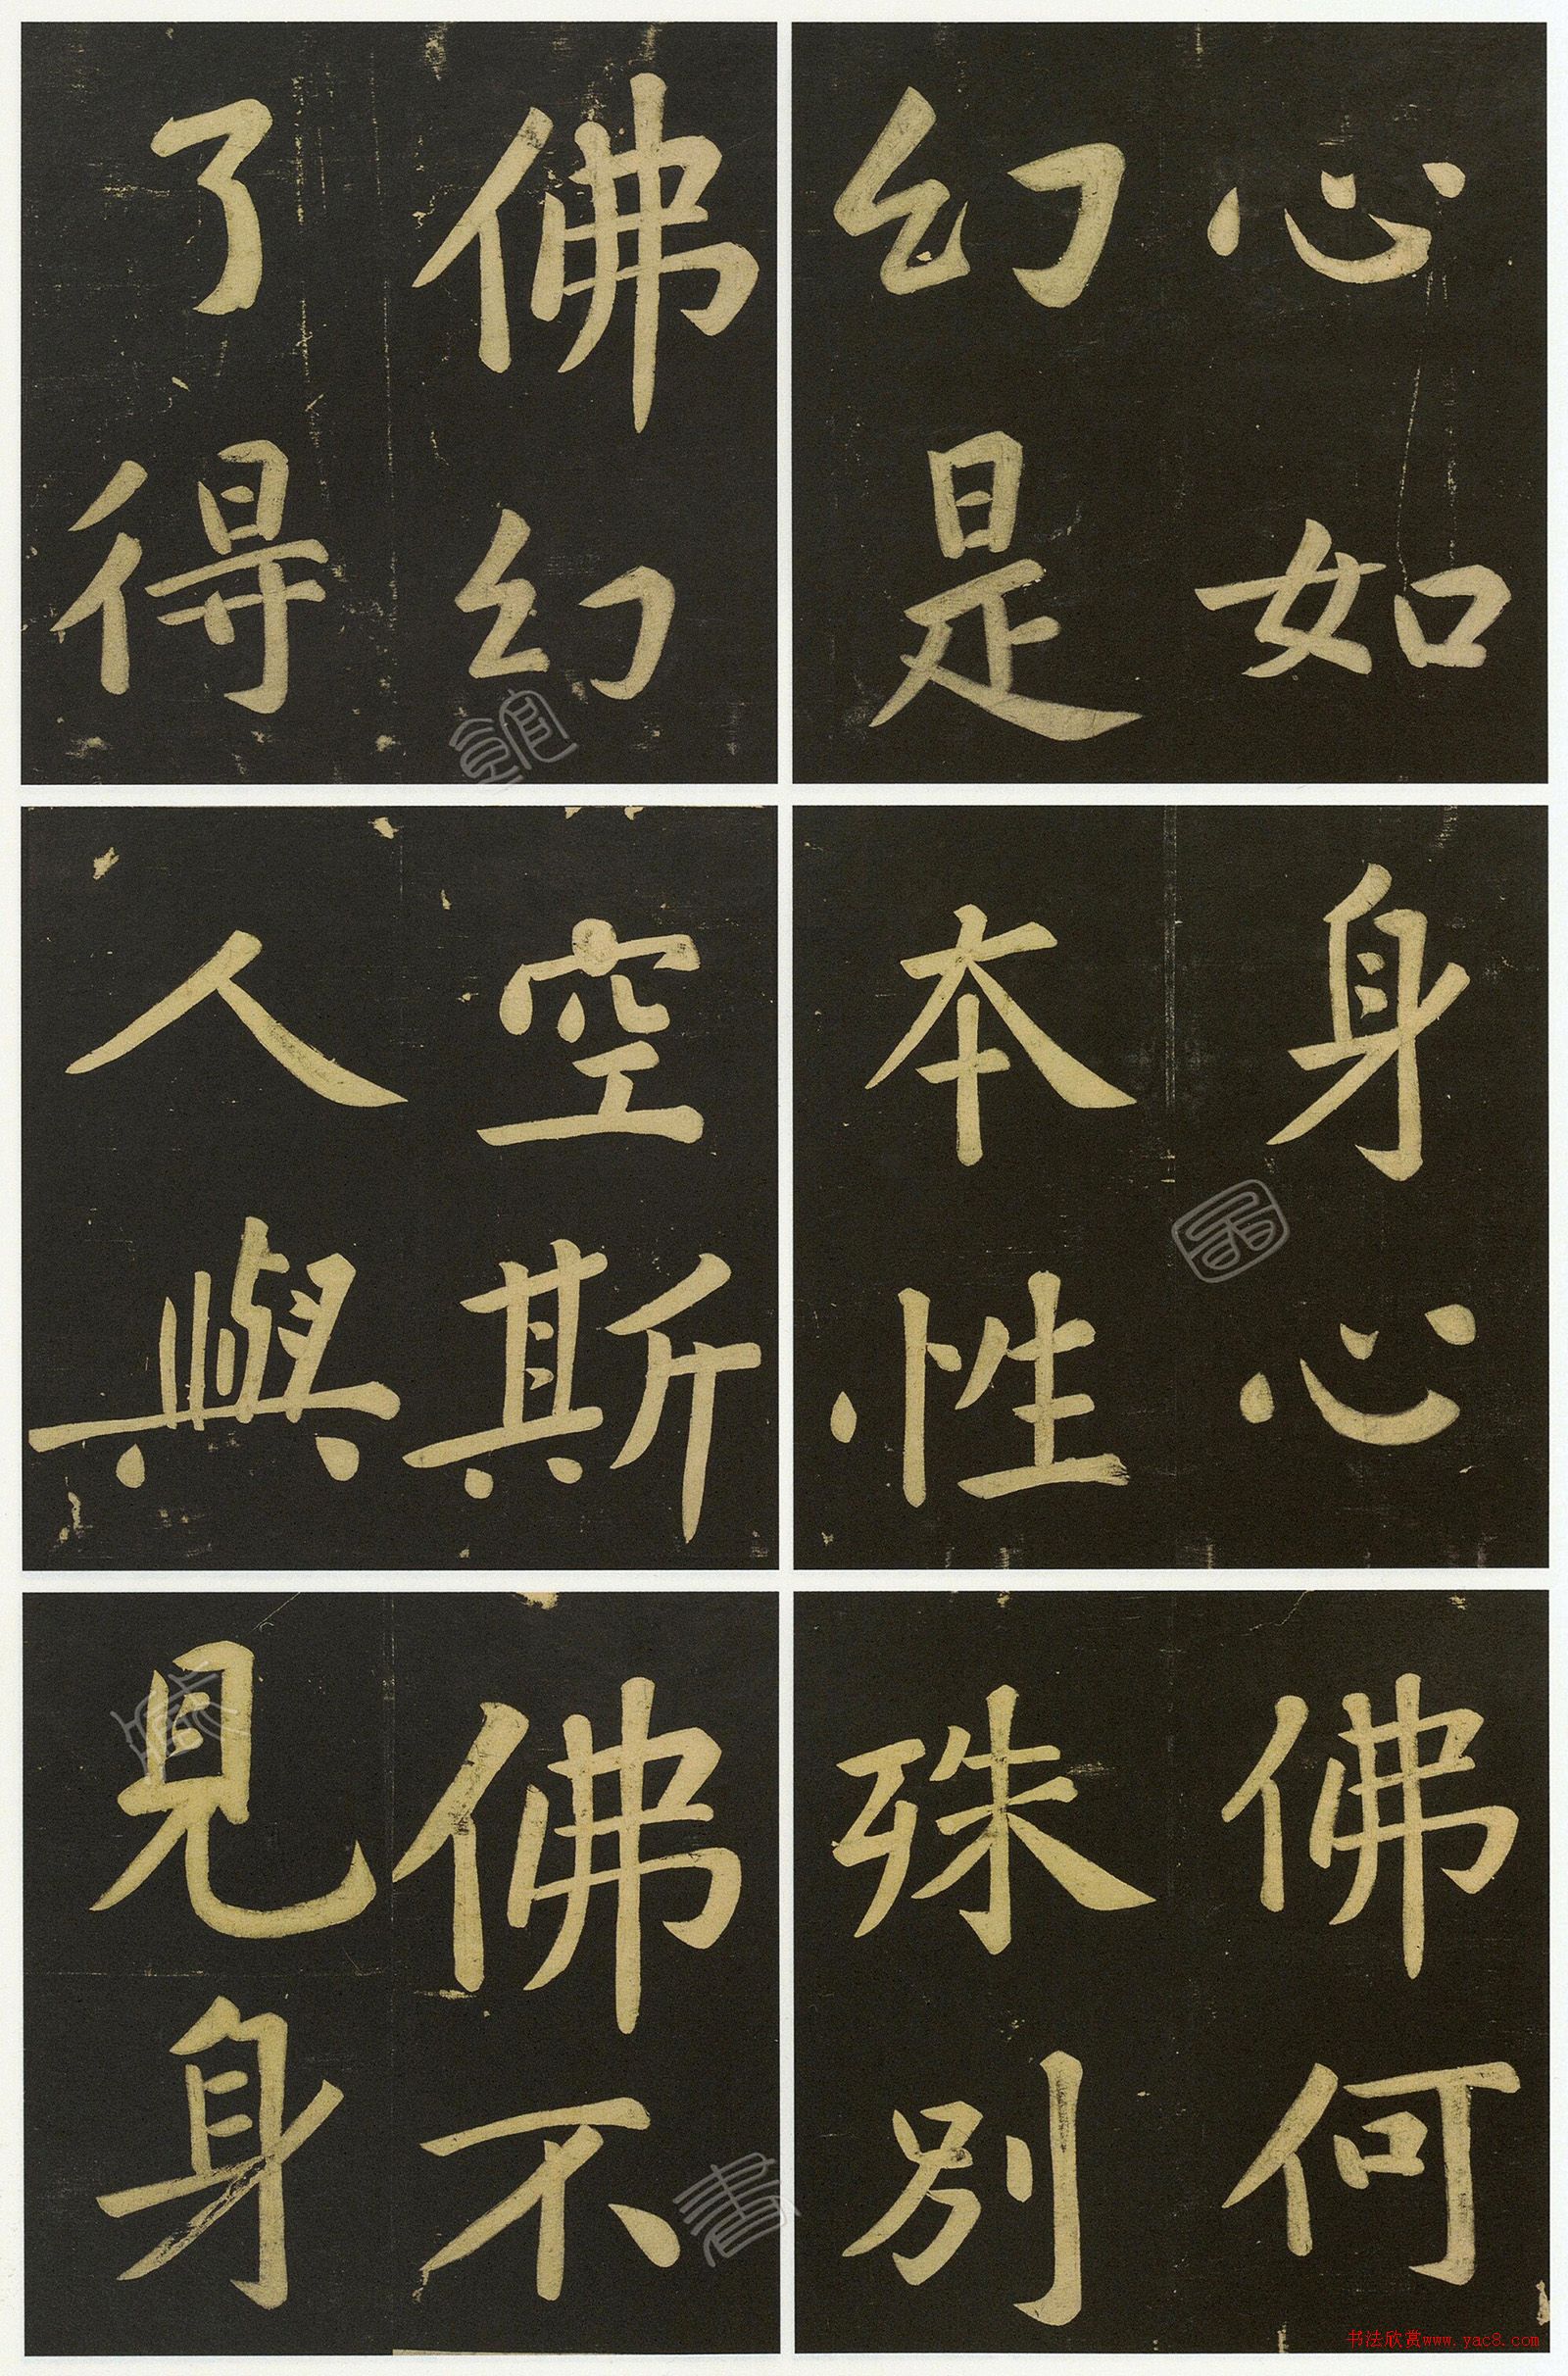 心如
幻是
佛幻
了得
身心
本性
空斯
人與
佛何
殊別
佛不
見身
书法欣赏www.yac8.com